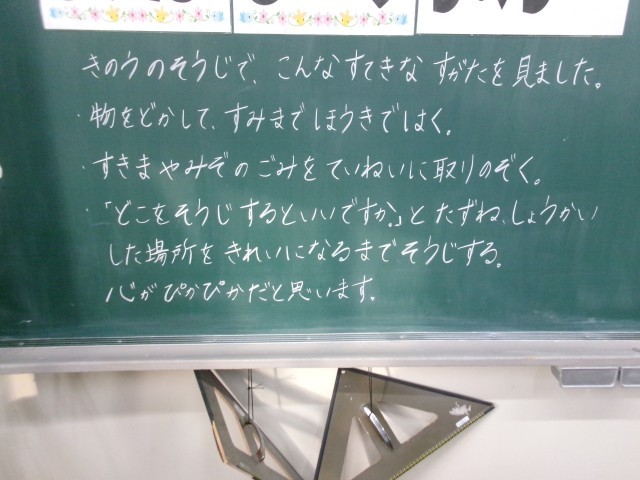 きのうのそうじで、こんなすてきなすがたを見ました。
・物をどかして、すみまでほうきではく。
・すきまやみぞのごみをていねいに取りのぞく。
・「どこをそうじするといいですか。」とたずね、しょうかい
した場所をきれいになるまでそうじする。
心がぴかぴかだと思います。